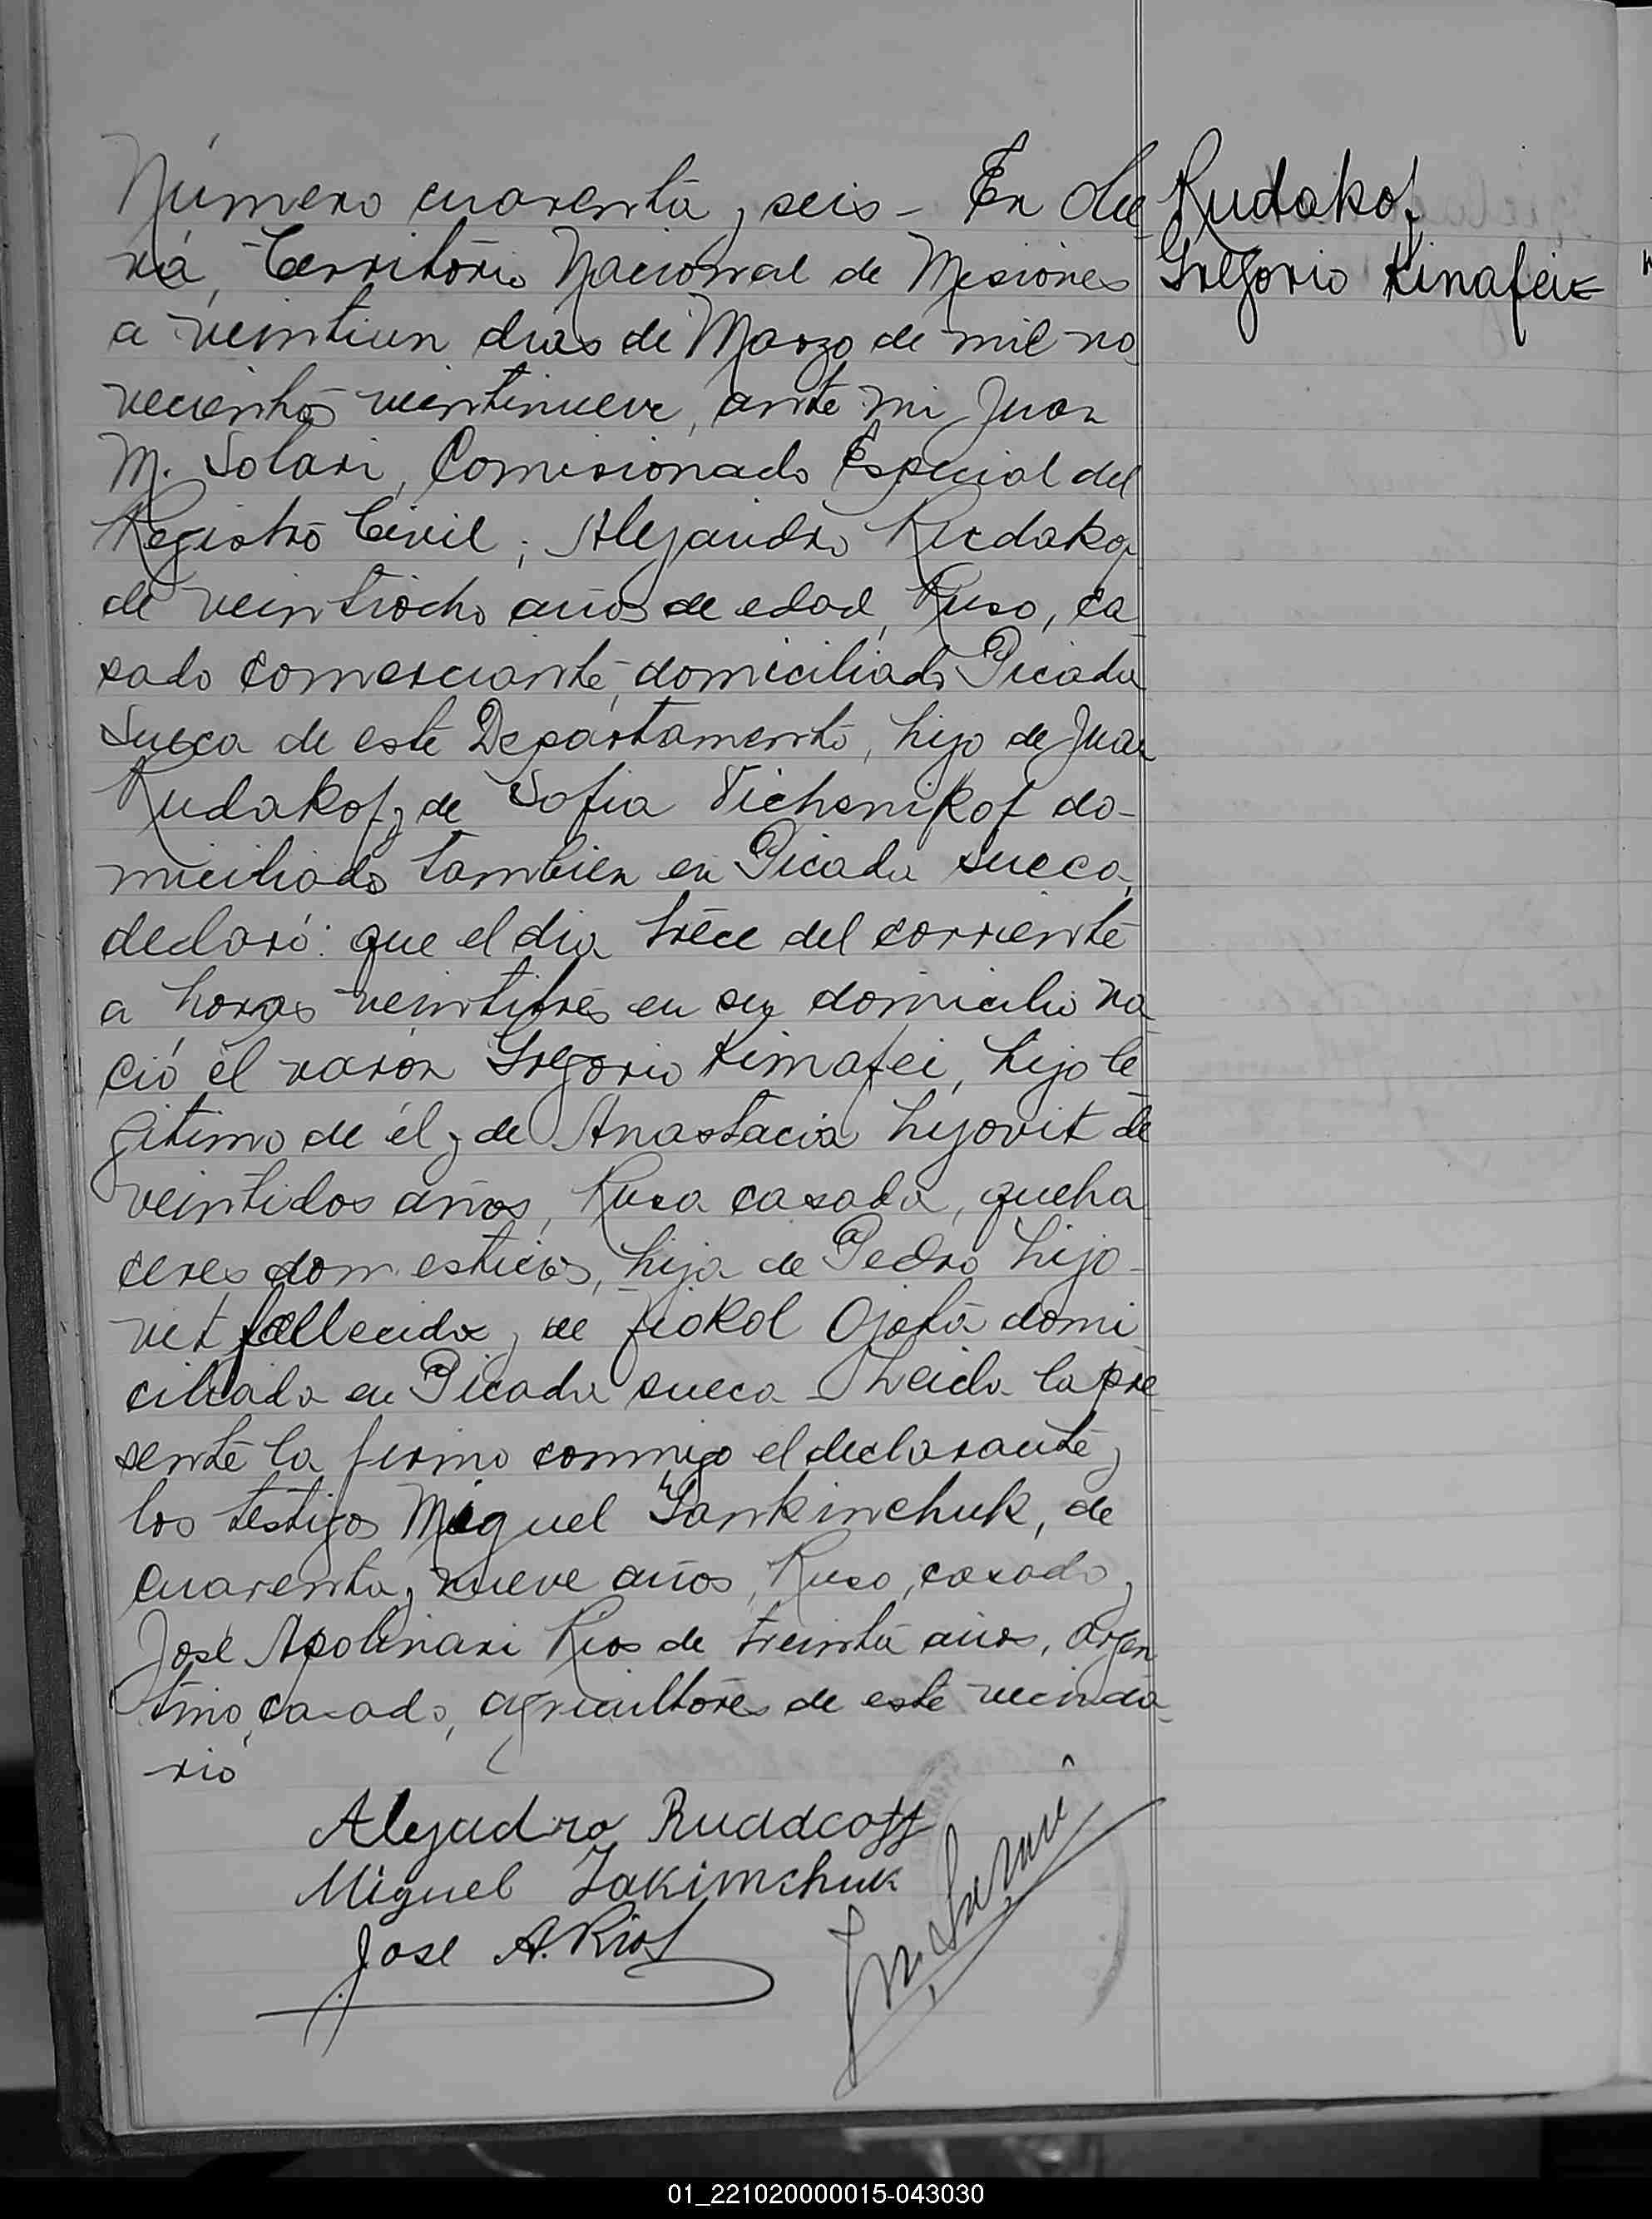 Número cuarenta y seis - En Ole
Rudakof
Gregorio Kinafeiz
rá, Territorio Nacional de Misiones
a veintiun dias de Marzo de mil no
vecientos veintinueve, ante mi Juan
M. Solari, Comisionado Especial del
Registro Civil; Alejandro Rudakof
de veintiocho años de edad, Ruso, ca
sado comerciante, domiciliado Picada
Sueca de este Departamento, hijo de Juan
Rudakof y de Sofia Vichenikof do-
miciliado tambien en Picada sueca,
declaró: que el dia trece del corriente
a horas veintitres en su domicilio na
ció el varon Gregorio Kimafei, hijo le
gitimo de él y de Anastacia Lijovit de
veintidos años, Rusa casada, queha
ceres domesticos, hija de Pedro Lijo-
vit fallecido y de Fiokol Ojota domi
ciliada en Picada sueca - Leida la pre
sente la firmo conmigo el declarante y
los testigos Miguel Yankinchuk, de
cuarenta y nueve años, Ruso, casado y
José Apolinari Rios de treinta años, argen
tino, casado, agricultores de este vecinda-
rio
Alejadro Ruadcoff
Miguel Jakimchuk
Jose A. Rios
01_221020000015-043030